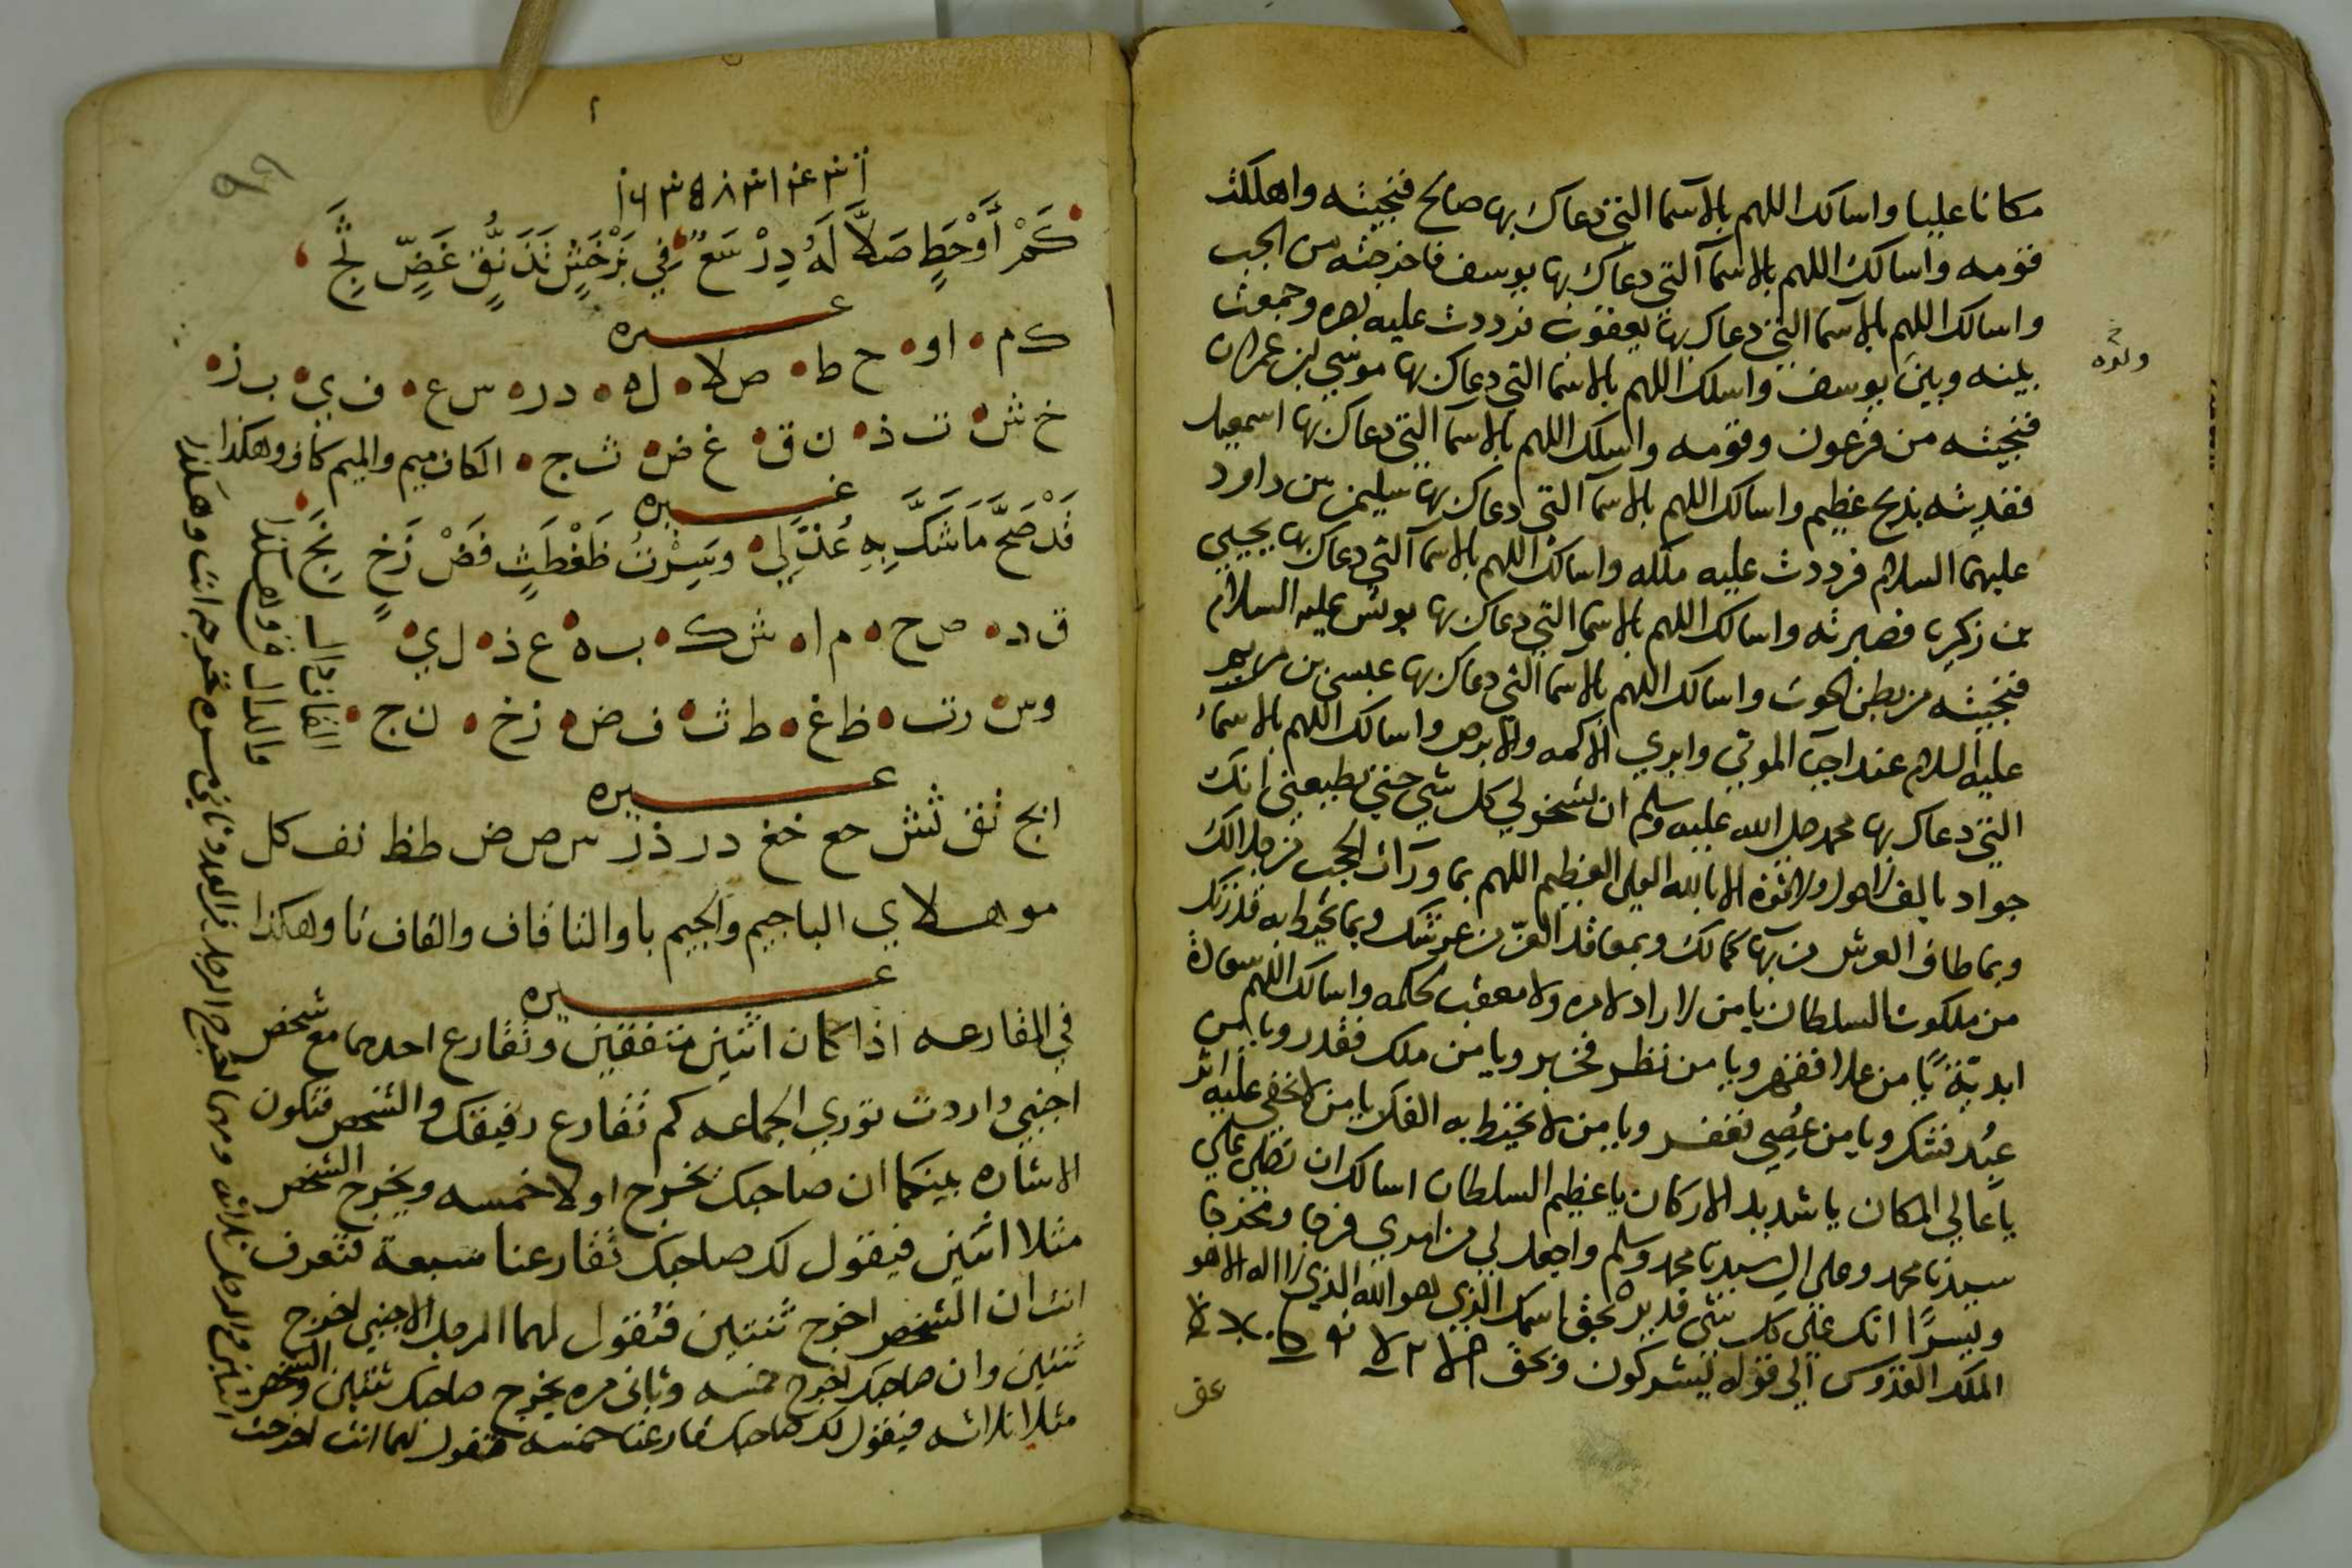 مكانا عليا واسالك اللهم بالاسما التي دعاك بها صالح فنجيته واهلكت
قومه واسالك اللهم بالاسما التي دعاك بها يوسف فاخرجته من الجب
واسالك اللهم بالاسما التي دعاك بها يعقوب فرددت عليه بصره وجمعت
بينه وبين يوسف واسلك اللهم بالاسما التي دعاك بها موسي بن عمران
فنجيته من فرعون وقومه واسلك اللهم بالاسما التي دعاك بها اسمعيل
ففديته بذبح عظيم واسالك اللهم بالاسما التي دعاك بها سليمن بن داود
عليهما السلام فرددت عليه ملكه واسالك اللهم بالاسما التي دعاك بها يحيي
بن زكريا فصيرته واسالك اللهم بالاسما التي دعاك بها يونس عليه السلام
فنجيته من بطن الحوت واسالك اللهم بالاسما التي دعاك بها عيسي بن مريم
عليه السلام عند احيا الموتي وابري الاكمه والابرص واسالك اللهم بالاسماء
التي دعاك بها محمد صلي الله عليه وسلم ان تسخر لي كل شي حتي يطيعني انك
جواد لا حول ولا قوة الا بالله العلي العظيم اللهم بما ورآات الحجب من جلالك
وبما طاف العرش من بها كمالك وبمعاقد العز من عرشك وبما تحيط به قدرتك
من ملكوت السلطان يا من لا راد لامره ولا معقب لحكمه واسالك اللهم
يا من علا فقهر ويا من نظر فخبر ويا من ملك فقدر ويا من
عبد فشكر ويا من عصي فغفر ويا من لا تحيط به الفكر يا من لا يخفي عليه اثر
يا عالي المكان يا شديد الاركان يا عظيم السلطان اسالك ان تصلي علي
سيدنا محمد وعلي ال سيدنا محمد وسلم واجعل لي من امري فرجا ومخرجا
ويسرا انك علي كل شي قدير بحق اسمك الذي هو الله الذي لا اله الا هو
الملك القدوس الي قوله يشركون وبحق
كم أو حط صلا له در سع في بز خش تذ نق غض ثج
غيره
ك م او ح ط ص لا ل ه د ر س ع ف ي ب ز
خ ش ت ذ ن ق غ ض ث ج الكاف ميم والميم كاف وهكذا
غيره
قد صح ما شك به عذ لي وسرت ظغ طث فض زخ نج
ق د ص ح م ا ش ك ب ه ع ذ ل ي القاف دال
و س ر ت ظ غ ط ث ف ض ز خ ن ج والدال ق وهكذا
غيره
ابج تق ثش حع خغ در ذز س ص ض طظ نف كل
مو هـ لا ي البا جيم والجيم با والتا قاف والقاف تا وهكذا
غيره
في المقارعه اذا كان اثنين متفقين وتقارع احدهما مع شخص
اجنبي واردت توري الجماعه كم تقارع رفيقك والشخص فتكون
الاشاره بينكما ان صاحبك يخرج اولا خمسه ويخرج الشخص
مثلا اثنين فيقول لك صاحبك تقارعنا سبعة فتعرف
انت ان الشخص اخرج ثنتين فتقول لهما الرجل الاجنبي اخرج
ثنتين وان صاحبك اخرج خمسه وثاني مره يخرج صاحبك ثنتين والشخص
مثلا ثلاثه فيقول لك صاحبك تقارعنا خمسه فتقول لهما انت اخرجت